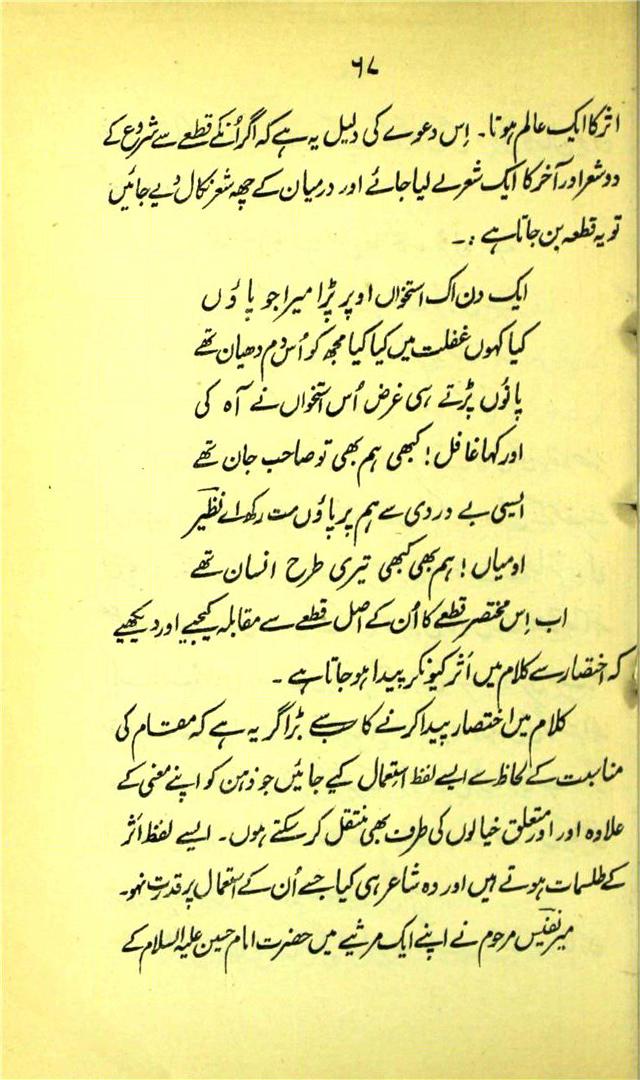 ۶۷
اثر کا ایک عالم ہوتا۔ اِس دعوے کی دلیل یہ ہے کہ اگر اُنکے قطعے سے شروع کے
دو شعر اور آخر کا ایک شعر لے لیا جائے اور درمیان کے چھ شعر نکال دیے جائیں
تو یہ قطعہ بن جاتا ہے :۔
ایک دن اک استخواں اوپر پڑا میرا جو پاؤں
کیا کہوں غفلت میں کیا کیا مجھ کو اُس دم دھیان تھے
پانؤں پڑتے ہی غرض اُس استخواں نے آہ کی
اور کہا غافل! کبھی ہم بھی تو صاحب جان تھے
ایسی بے دردی سے ہم پر پاؤں مت رکھ اے نظیر
او میاں! ہم بھی کبھی تیری طرح انسان تھے
اب اِس مختصر قطعے کا اُن کے اصل قطعے سے مقابلہ کیجیے اور دیکھیے
کہ اختصار سے کلام میں اَثر کیونکر پیدا ہو جاتا ہے۔
کلام میں اختصار پیدا کرنے کا سب سے بڑا گر یہ ہے کہ مقام کی
مناسبت کے لحاظ سے ایسے لفظ استعمال کیے جائیں جو ذہن کو اپنے معنی کے
علاوہ اور اور متعلق خیالوں کی طرف بھی منتقل کر سکتے ہوں۔ ایسے لفظ اثر
کے طلسمات ہوتے ہیں اور وہ شاعر ہی کیا جسے اُن کے استعمال پر قدرت نہو۔
میر نفیس مرحوم نے اپنے ایک مرثیے میں حضرت امام حسین علیہ السلام کے